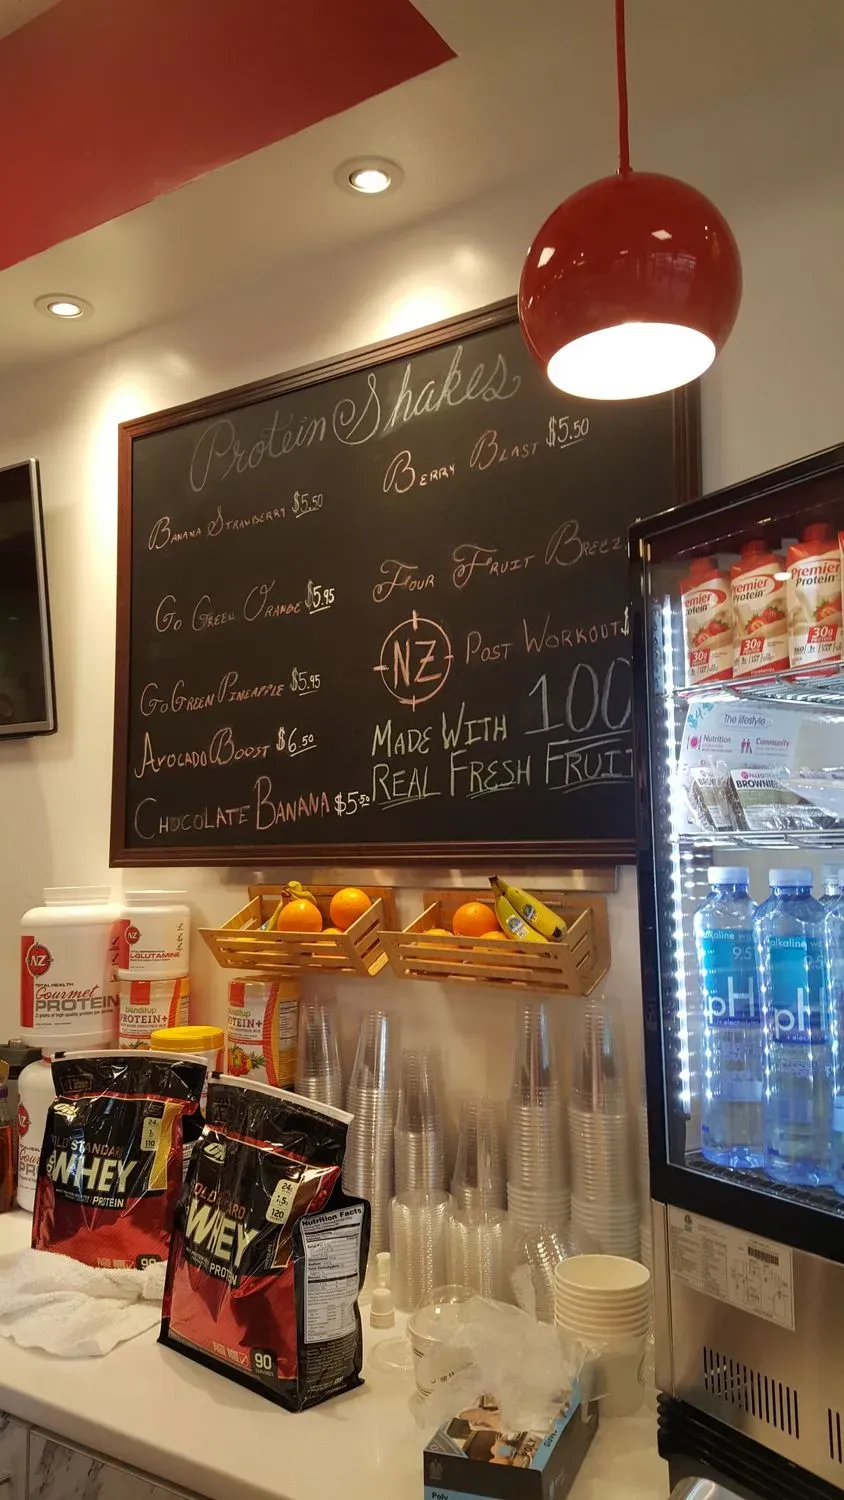 Protein Shakes
Banana Strawberry $5.50
Berry Blast $5.50
Go Green Orange $5.95
Four Fruit Breez
NZ Post Workout $
Go Green Pineapple $5.95
Avocado Boost $6.50
Chocolate Banana $5.50
Made With 100
Real Fresh Fruit
Premier
Protein
30g
Premier
Protein
30g
Premier
Protein
30g
The lifestyle
Nutrition
Community
BROWNIE
alkaline
9.5
pH
alkaline
9.5
pH
NZ
TOTAL HEALTH
Gourmet
PROTEIN
NZ
L-GLUTAMINE
PROTEIN+
PROTEIN+
NZ
ON
GOLD STANDARD
WHEY
PROTEIN
24g
110
ON
WHEY
PROTEIN
24g
1.5g
120
Nutrition Facts
90
SERVINGS
Poly